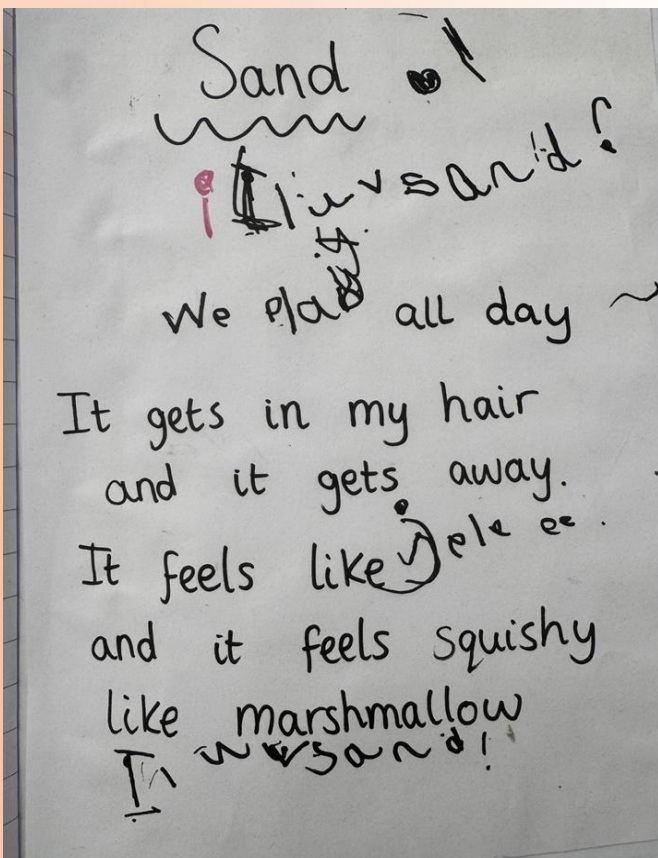 Sand
sand!
We play all day
It gets in my hair
and it gets away.
It feels like
and it feels squishy
like marshmallow
sand!